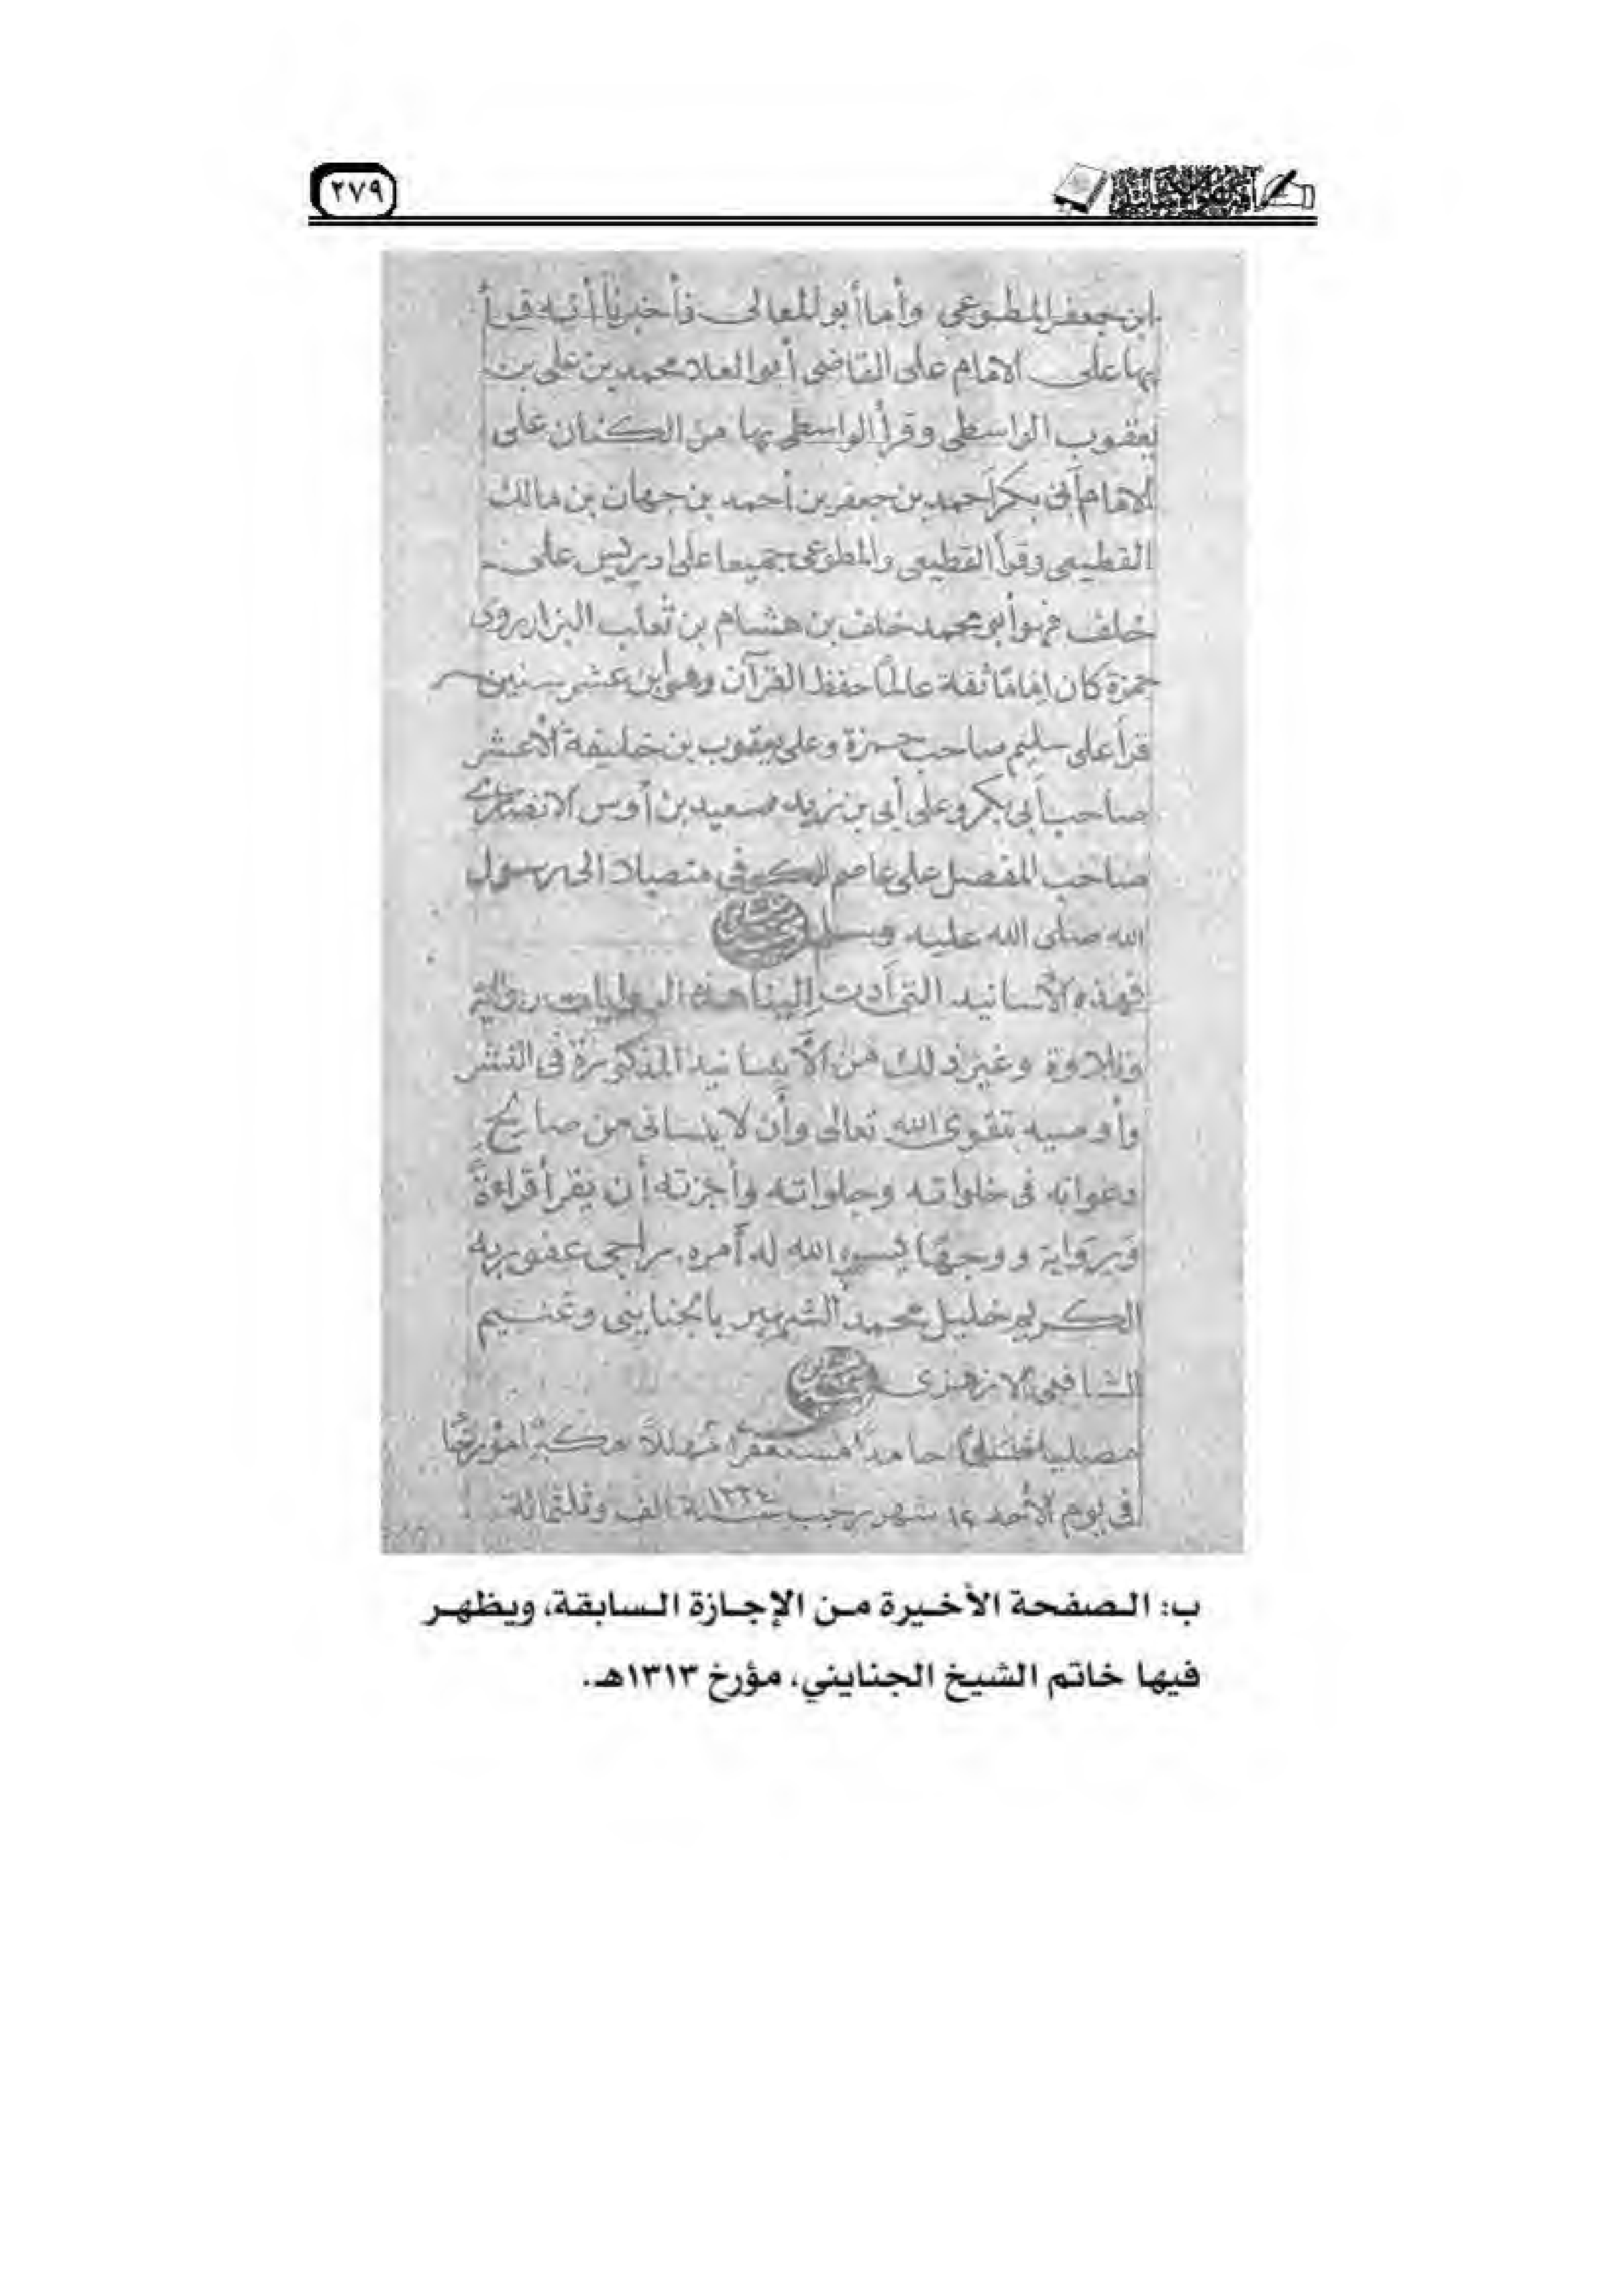 ٢٧٩
ابن جعفر المطوعي وأما أبو المعالي فأخبرنا أنه قرأ
بها على الامام على القاضى أبو العلا محمد بن على بن
يعقوب الواسطى وقرأ الواسطى بها من الكتاب على
الامام أبى بكر أحمد بن جعفر بن أحمد بن مالك
القطيعى وقرأ القطيعى والمطوعى جميعا على ادريس على
خلف فهو أبو محمد خلف بن هشام بن ثعلب البزار روى
حمزة كان إمامًا ثقة عالمًا حفظ القرآن وهو ابن عشر سنين
قرأ على سليم صاحب حمزة وعلى يعقوب بن خليفة الأعشر
صاحب أبى بكر وعلى أبى بن زيد سعيد بن أوس الانصارى
صاحب المفضل على عاصم الكوفى متصلا الى رسول
الله صلى الله عليه وسلم
فهذه الأسانيد التى أدت إلينا هذه الروايات رواية
وتلاوة وغير ذلك من الأسانيد المذكورة فى النشر
وأوصيه بتقوى الله تعالى وأن لا ينسانى من صالح
دعواته فى خلواته وجلواته وأجزته أن يقرأ قراءة
ورواية ووجهًا يسر الله له أمره راجى عفو ربه
الكريم خليل محمد الشهير بالجناينى وغنيم
الشافعى الازهرى
مصليا حامدا مستغفرا مهللا مكبرا مؤرخا
فى يوم الأحد ١٢ شهر رجب سنة ١٣٣٤ الف وثلثمائة
ب: الصفحة الأخيرة من الإجازة السابقة، ويظهر
فيها خاتم الشيخ الجنايني، مؤرخ ١٣١٣هـ.